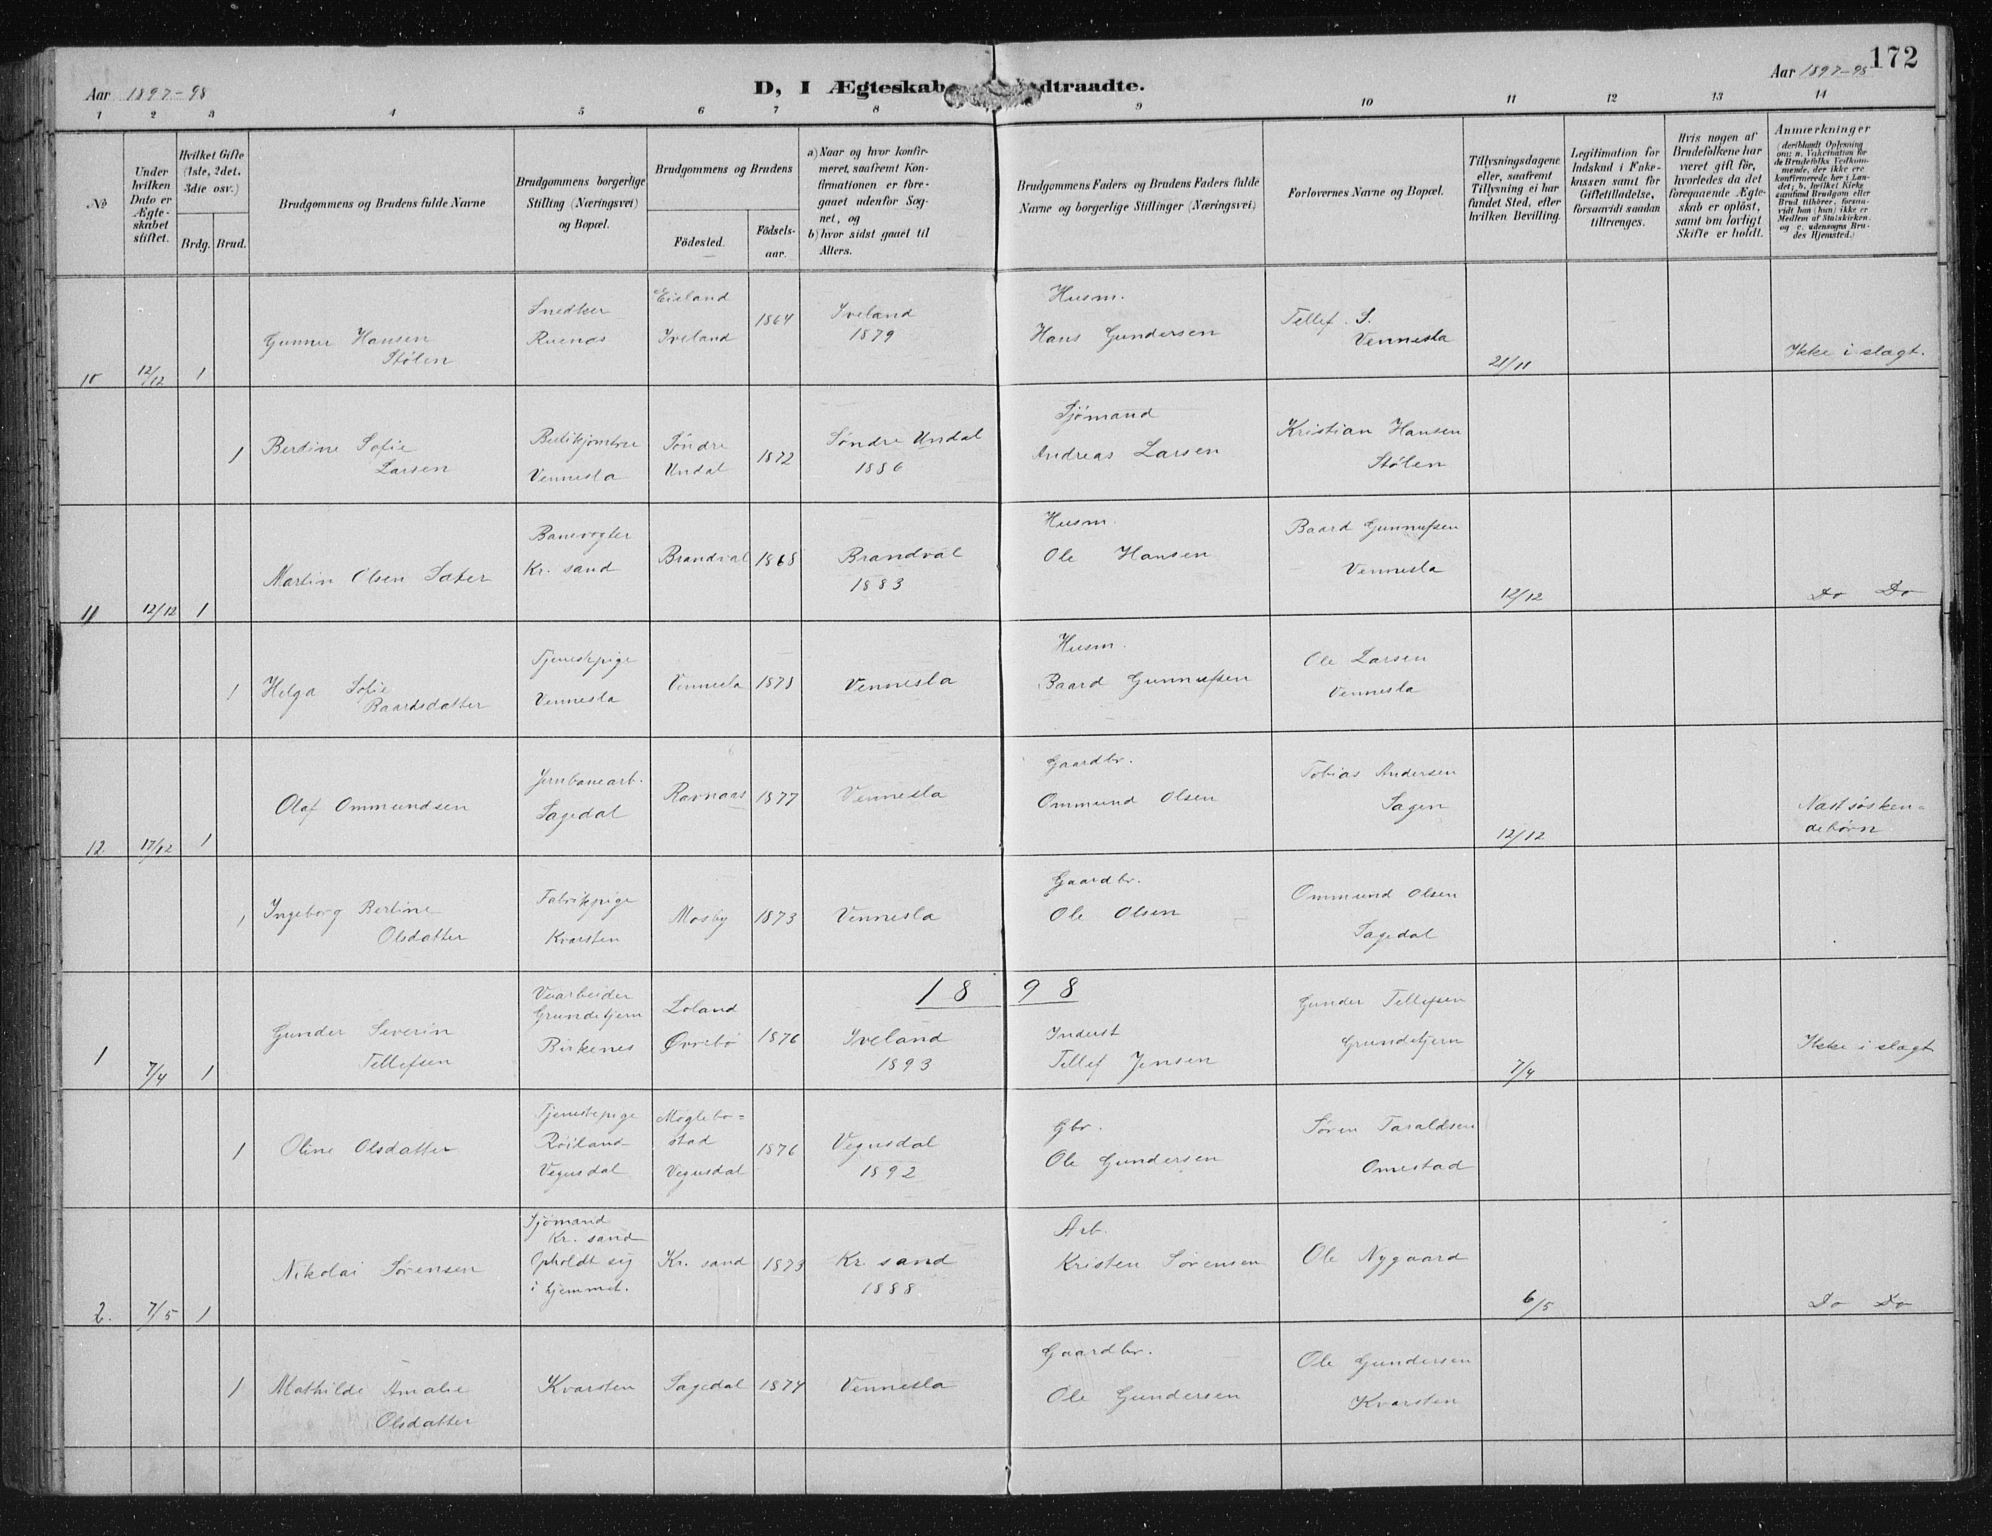 172
Aar 1897-98
D, I Ægteskab
dtraadte.
Aar 1897-98
1 2 3 4 5 6 7 8 9 10 11 12 13 14
No
Under hvilken Dato er Ægteskabet stiftet.
Hvilket Gifte (1ste, 2det, 3die osv.)
Brdg. Brud.
Brudgommens og Brudens fulde Navne
Brudgommens borgerlige Stilling (Næringsvei) og Bopæl.
Brudgommens og Brudens
Fødested.
Fødsels-aar.
a) Naar og hvor konfirmeret, saafremt Konfirmationen er foregaaet udenfor Sognet, og
b) hvor sidst gaaet til Alters.
Brudgommens Faders og Brudens Faders fulde Navne og borgerlige Stillinger (Næringsvei)
Forlovernes Navne og Bopæl.
Tillysningsdagene eller, saafremt Tillysning ei har fundet Sted, efter hvilken Bevilling.
Legitimation for Indskud i Enkekassen samt for Giftetilladelse, forsaavidt saadan tiltrænges.
Hvis nogen af Brudefolkene har været gift før, hvorledes da det foregaaende Ægteskab er opløst, samt om lovligt Skifte er holdt.
Anmærkninger
(deriblandt Oplysning om: a. Vakcination for de Brudefolks Vedkommende, der ikke ere konfirmerede her i Landet; b. hvilket Kirkesamfund Brudgom eller Brud tilhører, forsaavidt han (hun) ikke er Medlem af Statskirken, og c. udensogns Brudes Hjemsted.)
10 12/12 1 Gunner Hansen Stølen
Snedker
Eieland
Iveland
1864
Iveland
1879
Husm.
Hans Gundersen
Tellef S.
Vennesla
21/11
Ikke i slægt.
1 Berdine Sofie
Larsen
Vennesla
Søndre
Undal
1872
Søndre Undal
1886
Sjømand
Andreas Larsen
Kristian Hansen
Stølen
11 12/12 1 Martin Olsen Sæter
Banevogter
Kr. sand
Brandval
1868
Brandval
1883
Husm.
Ole Hansen
Baard Gunnufsen
Vennesla
12/12
Do Do
1 Helga Sofie
Baardsdatter
Tjenestepige
Vennesla
Vennesla
1878
Vennesla
Husm.
Baard Gunnufsen
Ole Larsen
Vennesla
12. 17/12 1 Olaf Ommundsen
Jernbanearb.
Sagedal
Ravnaas
1877
Vennesla
Gaardbr.
Ommund Olsen
Tobias Andersen
Sagen
12/12
Næstsøsken=
debørn
1 Ingeborg Bertine
Olsdatter
Fabrikpige
Kvarsten
Mosby
1873
Vennesla
Gaardbr.
Ole Olsen
Ommund Olsen
Sagedal
1898
1 7/4 1 Gunder Severin
Tellefsen
Grundetjern
Birkenes
Loland
Øvrebø
1876
Iveland
1893
Inderst
Tellef Jensen
Gunder Tellefsen
Grundetjern
7/4
Ikke i slægt
1 Oline Olsdatter
Tjenestepige
Røiland
Vegusdal
Møglebo=
stad
Vegusdal
1876
Vegusdal
1892
Gbr.
Ole Gundersen
Søren Taraldsen
Omestad
2. 7/5 1 Nikolai Sørensen
Sjømand
Kr. sand
Opholdt sig
i hjemmet.
Kr. sand
1873
Kr. sand
1888
Arb.
Kristen Sørensen
Ole Nygaard
6/5
Do Do
1 Mathilde Amalie
Olsdatter
Kvarsten
Sagedal
1874
Vennesla
Gaardbr.
Ole Gundersen
Ole Gundersen
Kvarsten